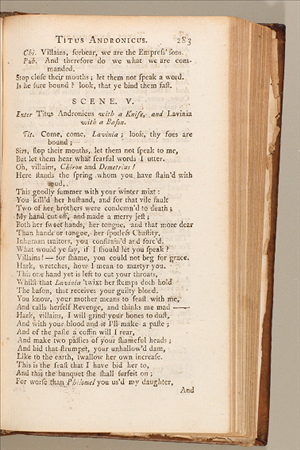 TITUS ANDRONICUS. 283
Chi. Villains, forbear, we are the Empress' sons.
Pub. And therefore do we what we are com-
manded.
Stop close their mouths; let them not speak a word.
Is he sure bound? look, that ye bind them fast.
SCENE. V.
Enter Titus Andronicus with a Knife, and Lavinia
with a Bason.
Tit. Come, come, Lavinia; look, thy foes are
bound;
Sirs, stop their mouths, let them not speak to me,
But let them hear what fearful words I utter.
Oh, villains, Chiron and Demetrius!
Here stands the spring whom you have stain'd with
mud,
This goodly summer with your winter mixt:
You kill'd her husband, and for that vile fault
Two of her brothers were condemn'd to death;
My hand cut off, and made a merry jest;
Both her sweet hands, her tongue, and that more dear
Than hands or tongue, her spotless Chastity,
Inhuman traitors, you constrain'd and forc'd.
What would ye say, if I should let you speak?
Villains!— for shame, you could not beg for grace.
Hark, wretches, how I mean to martyr you.
This one hand yet is left to cut your throats,
Whilst that Lavinia 'twixt her stumps doth hold
The bason, that receives your guilty blood.
You know, your mother means to feast with me,
And calls herself Revenge, and thinks me mad —
Hark, villains, I will grind your bones to dust,
And with your blood and it I'll make a paste;
And of the paste a coffin I will rear,
And make two pasties of your shameful heads;
And bid that strumpet, your unhallow'd dam,
Like to the earth, swallow her own increase.
This is the feast that I have bid her to,
And this the banquet she shall surfeit on;
For worse than Philomel you us'd my daughter,
And